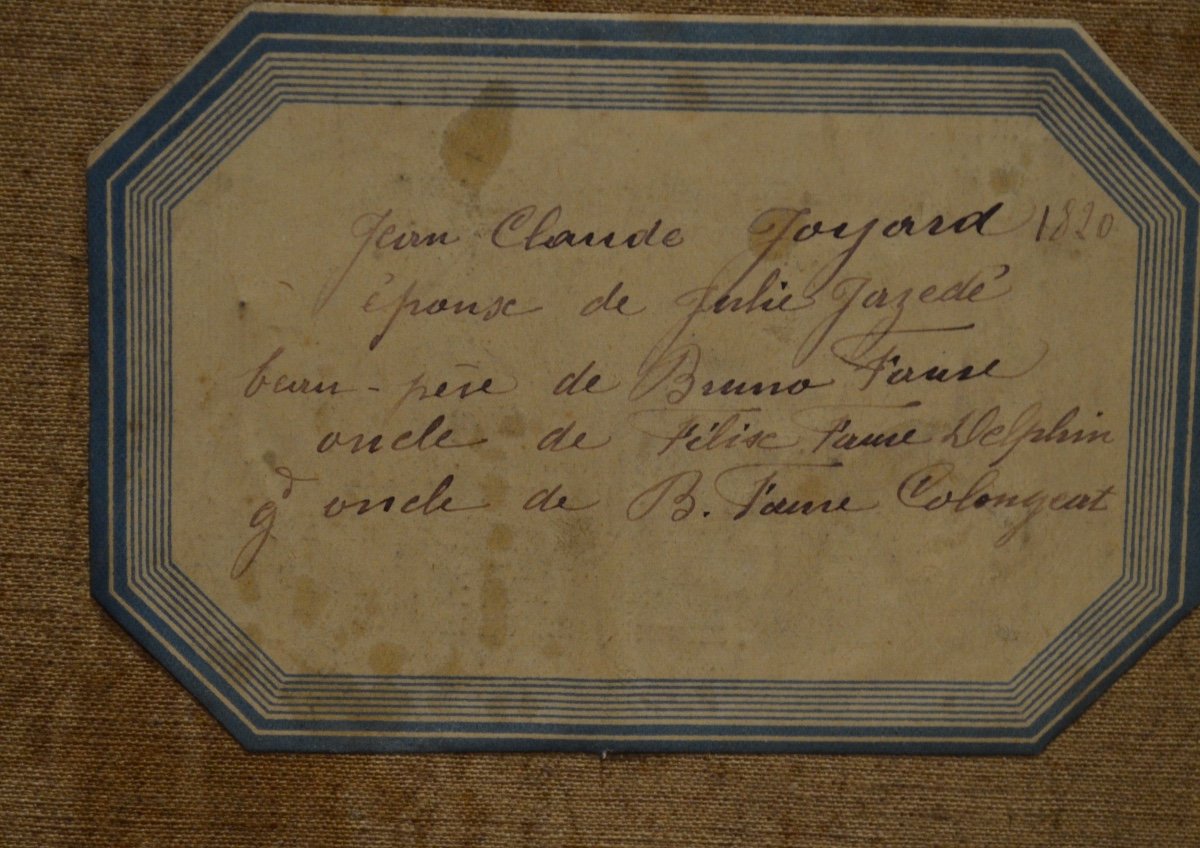 Jean Claude Joyard 1820
époux de Julie Jazedé
beau-père de Bruno Faure
oncle de Félix Faure Delphin
gd oncle de B. Faure Colongeat